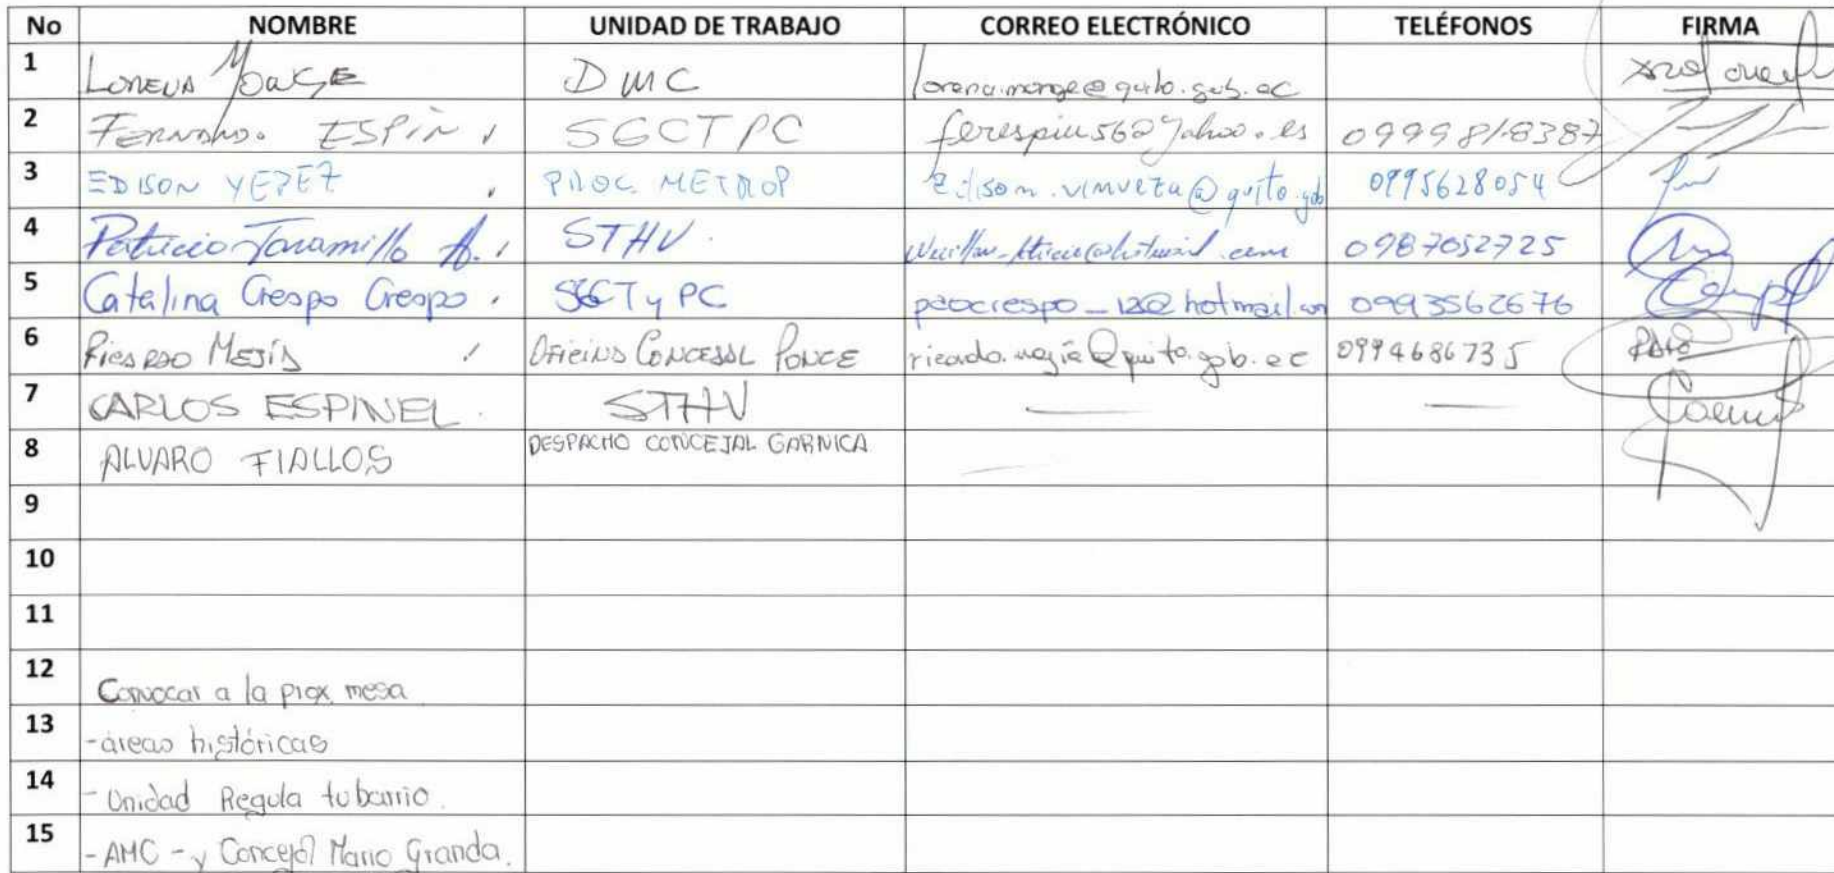 No NOMBRE UNIDAD DE TRABAJO CORREO ELECTRÓNICO TELÉFONOS FIRMA
1 LORENA MONGE DMC lorena.monge@quito.gob.ec
2 FERNANDO. ESPÍN SGCTPC 0999818387
3 EDISON YEPEZ PROC. METROP 0995628054
4 Patricio Jaramillo A. STHV. 0987052725
5 Catalina Crespo Crespo SGCT y PC 0993562676
6 RICARDO MEJÍA OFICINA CONCEJAL PONCE ricardo.mejia@quito.gob.ec 0994686735
7 CARLOS ESPINEL. STHV — —
8 ALVARO FIALLOS DESPACHO CONCEJAL GARNICA —
9
10
11
12 Convocar a la prox. mesa
13 -áreas históricas
14 - Unidad Regula tu barrio.
15 - AMC - y Concejal Mario Granda.